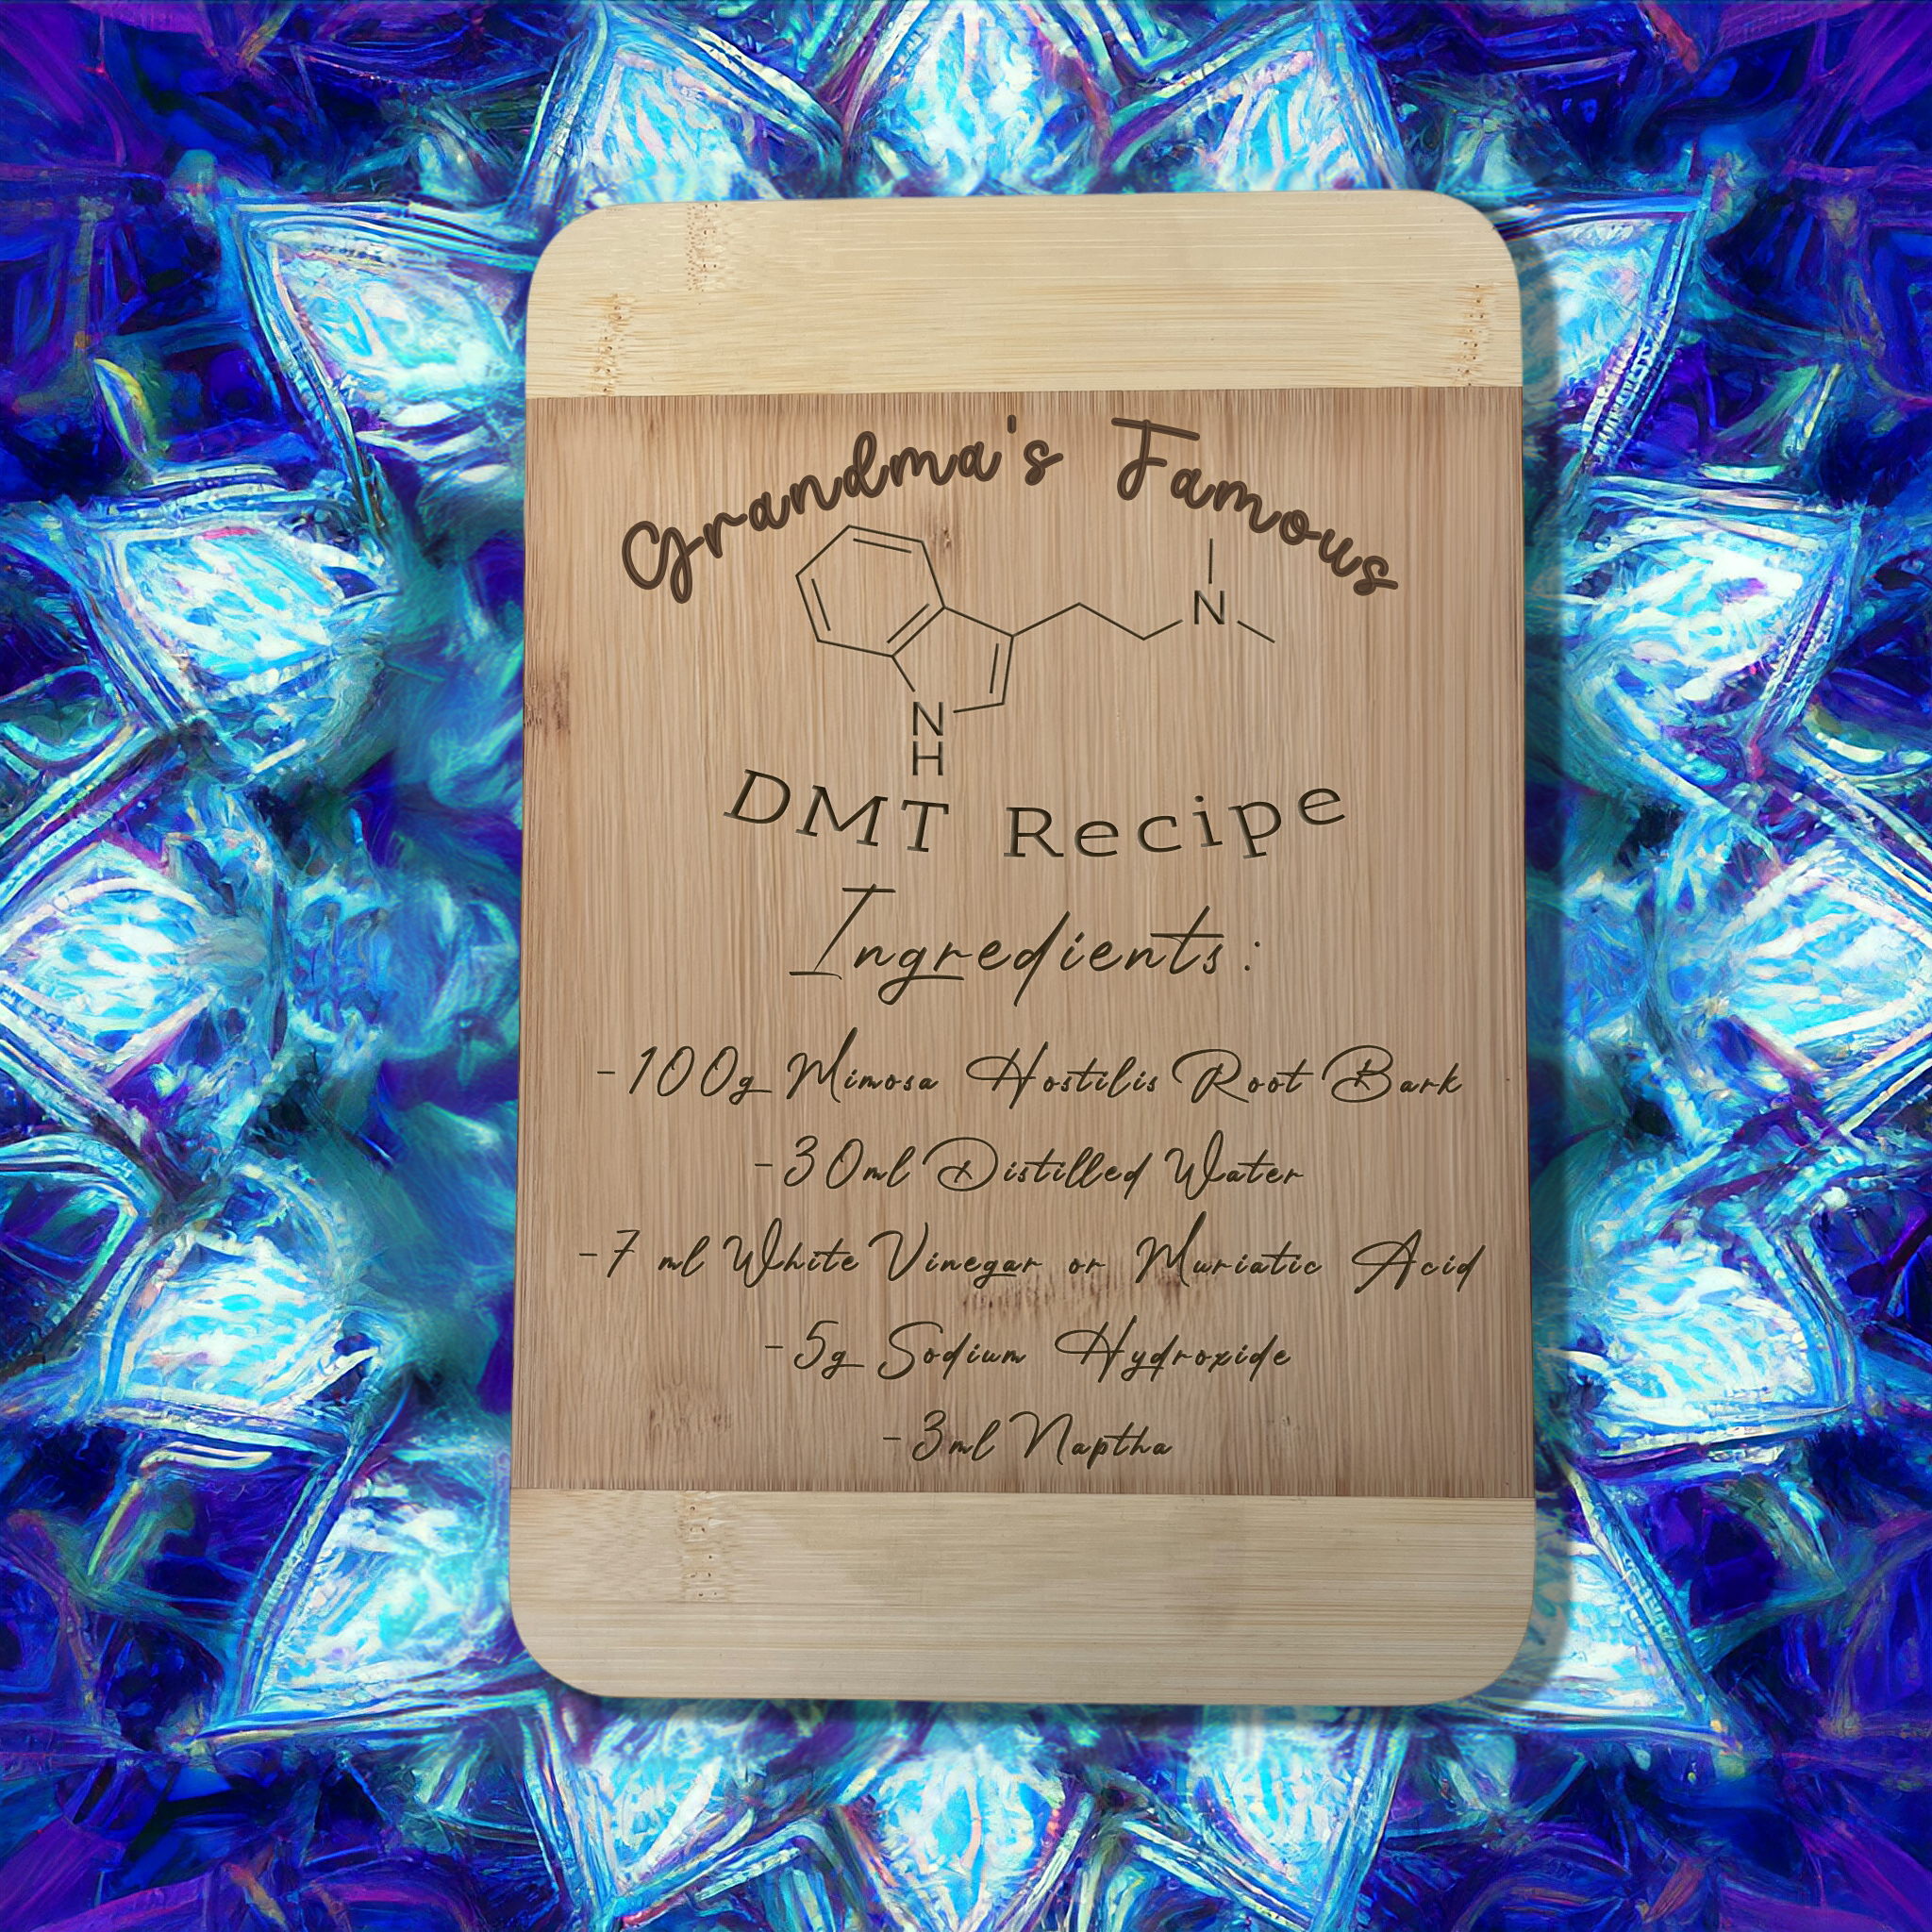 Grandma's Famous
N
N
H
DMT Recipe
Ingredients:
-100g Mimosa Hostilis Root Bark
-30ml Distilled Water
-7 ml White Vinegar or Muriatic Acid
-5g Sodium Hydroxide
-3ml Naptha